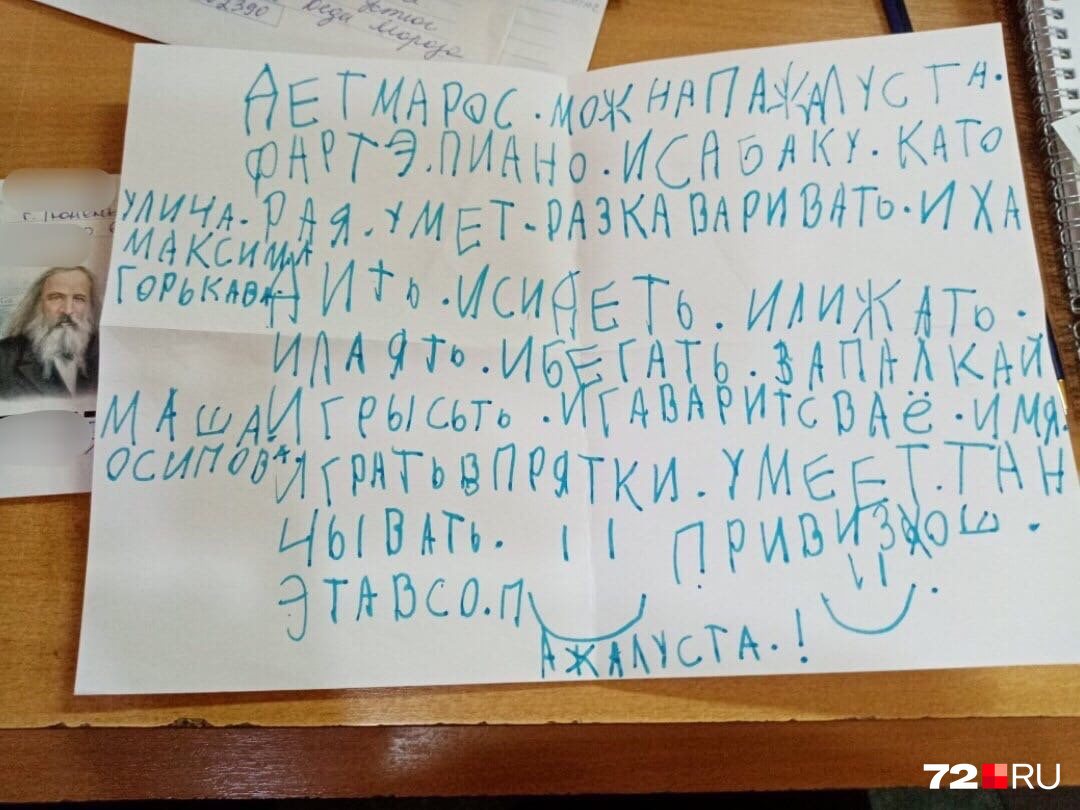 02390
Деда Мороза
ДЕТ МАРОС. МОЖНА ПАЖАЛУСТА.
ФАРТЭ.ПИАНО. И САБАКУ. КАТО
РАЯ. УМЕТ - РАЗКАВАРИВАТЬ. И ХА
ДИТЬ. И СИДЕТЬ. И ЛИЖАТЬ.
И ЛАЯТЬ. И БЕГАТЬ. ЗАПАЛКАЙ
И ГРЫСЬТЬ. И ГАВАРИТ СВАЁ. ИМЯ.
ИГРАТЬ В ПРЯТКИ. УМЕЕТ. ТАН
ЧЫВАТЬ. ПРИВИЗЮШ.
ЭТА ВСО. П
АЖАЛУСТА. !
УЛИЧА.
МАКСИМА
ГОРЬКАВА.
МАША
ОСИПОВА.
72.RU